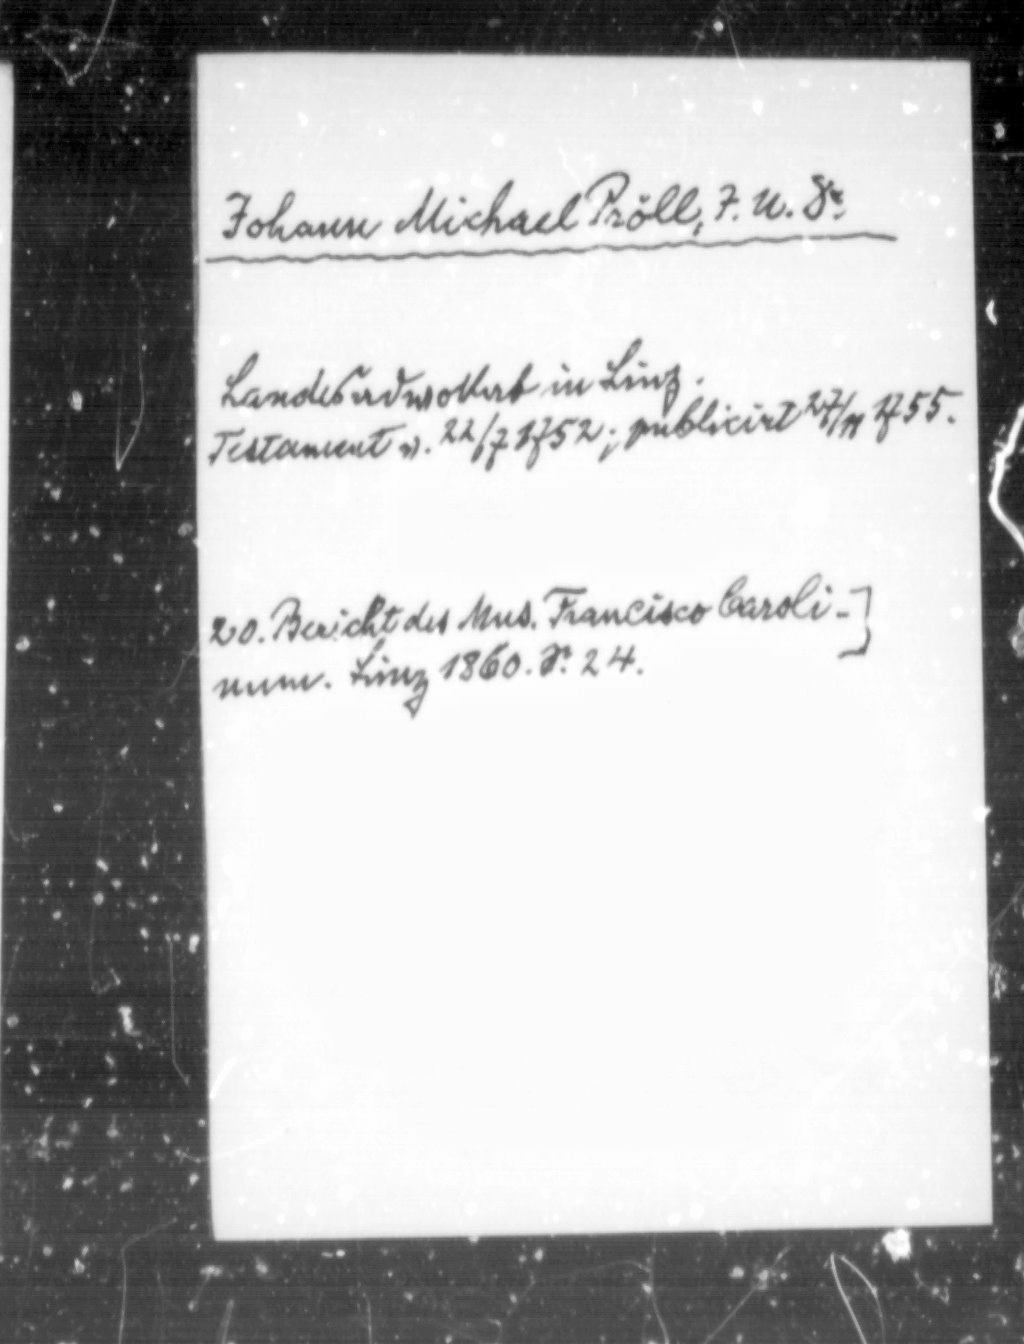 Johann Michael Pröll, J. U. Dr.
Landesadvokat in Linz.
Testament v. 22/7 1752; publicirt 27/11 1755.
20. Bericht des Mus. Francisco Caroli-]
num. Linz 1860. S. 24.